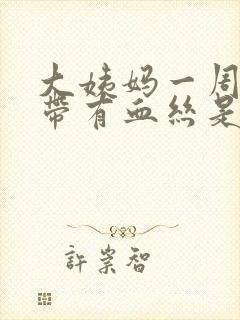 大姨妈一周
带有血丝是
許崇智